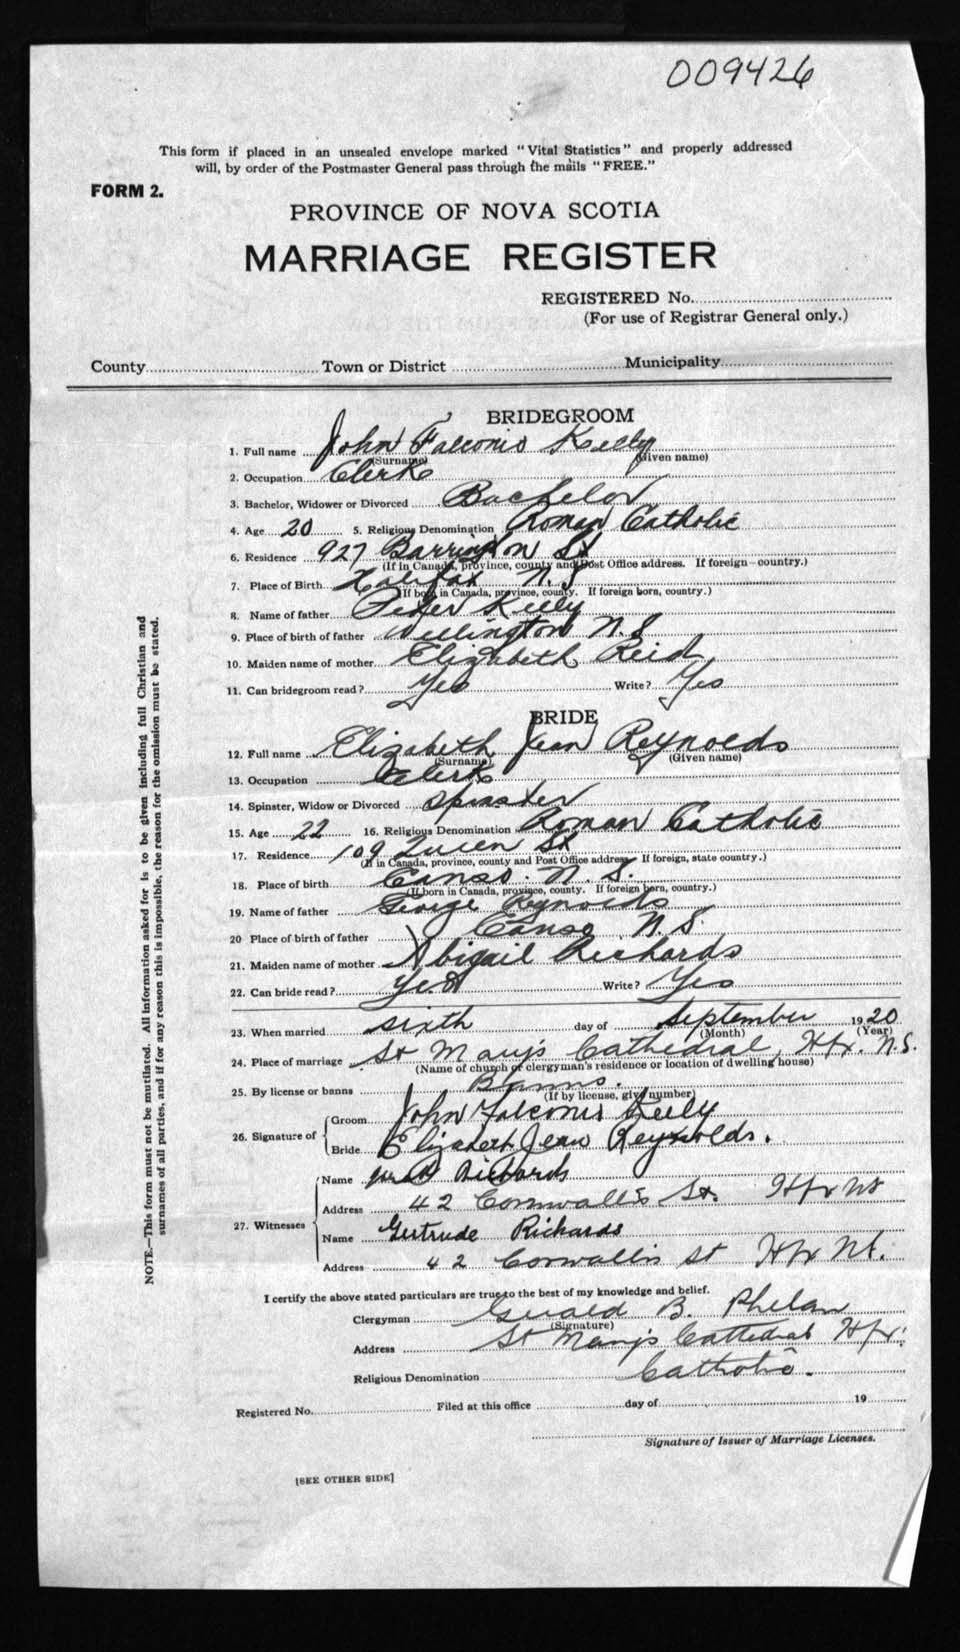 009426
This form if placed in an unsealed envelope marked "Vital Statistics" and properly addressed
will, by order of the Postmaster General pass through the mails "FREE."
FORM 2.
PROVINCE OF NOVA SCOTIA
MARRIAGE REGISTER
REGISTERED No.
(For use of Registrar General only.)
County Town or District Municipality
BRIDEGROOM
1. Full name John Falconio Kelly
(Surname) (Given name)
2. Occupation Clerk
3. Bachelor, Widower or Divorced Bachelor
4. Age 20 5. Religious Denomination Roman Catholic
6. Residence 927 Barrington St
(If in Canada, province, county and Post Office address. If foreign—country.)
7. Place of Birth Halifax N. S
(If born in Canada, province, county. If foreign born, country.)
8. Name of father Peter Kelly
9. Place of birth of father Wellington N. S
10. Maiden name of mother Elizabeth Reid
11. Can bridegroom read? Yes Write? Yes
BRIDE
12. Full name Elizabeth Jean Reynolds
(Surname) (Given name)
13. Occupation Clerk
14. Spinster, Widow or Divorced Spinster
15. Age 22 16. Religious Denomination Roman Catholic
17. Residence 109 Queen St
(If in Canada, province, county and Post Office address. If foreign, state country.)
18. Place of birth Canso. N. S.
(If born in Canada, province, county. If foreign born, country.)
19. Name of father George Reynolds
20 Place of birth of father Canso N. S.
21. Maiden name of mother Abigail Richards
22. Can bride read? Yes Write? Yes
23. When married sixth day of September 1920
(Month) (Year)
24. Place of marriage St Mary's Cathedral, Hfx. N.S.
(Name of church or clergyman's residence or location of dwelling house)
25. By license or banns Banns.
(If by license, give number)
26. Signature of Groom John Falconio Kelly
Bride Elizabeth Jean Reynolds.
27. Witnesses Name Richards
Address 42 Cornwallis St. Hfx NS
Name Gertrude Richards
Address 42 Cornwallis St Hfx NS.
I certify the above stated particulars are true to the best of my knowledge and belief.
Clergyman Gerald B. Phelan
(Signature)
Address St Mary's Cathedral Hfx.
Religious Denomination Catholic.
Registered No. Filed at this office day of 19
Signature of Issuer of Marriage Licenses.
[SEE OTHER SIDE]
NOTE.—This form must not be mutilated. All information asked for is to be given including full Christian and
surnames of all parties, and if for any reason this is impossible, the reason for the omission must be stated.